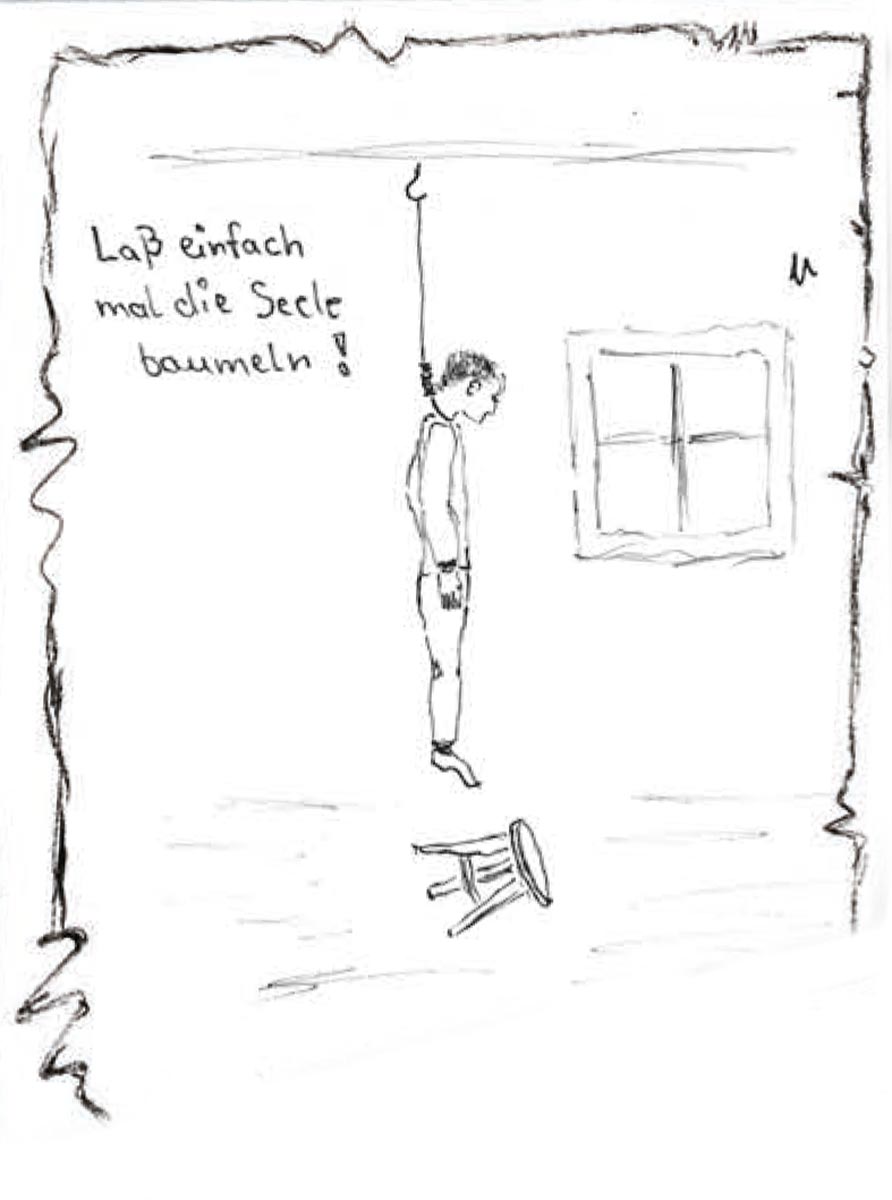 Laß einfach
mal die Seele
baumeln!